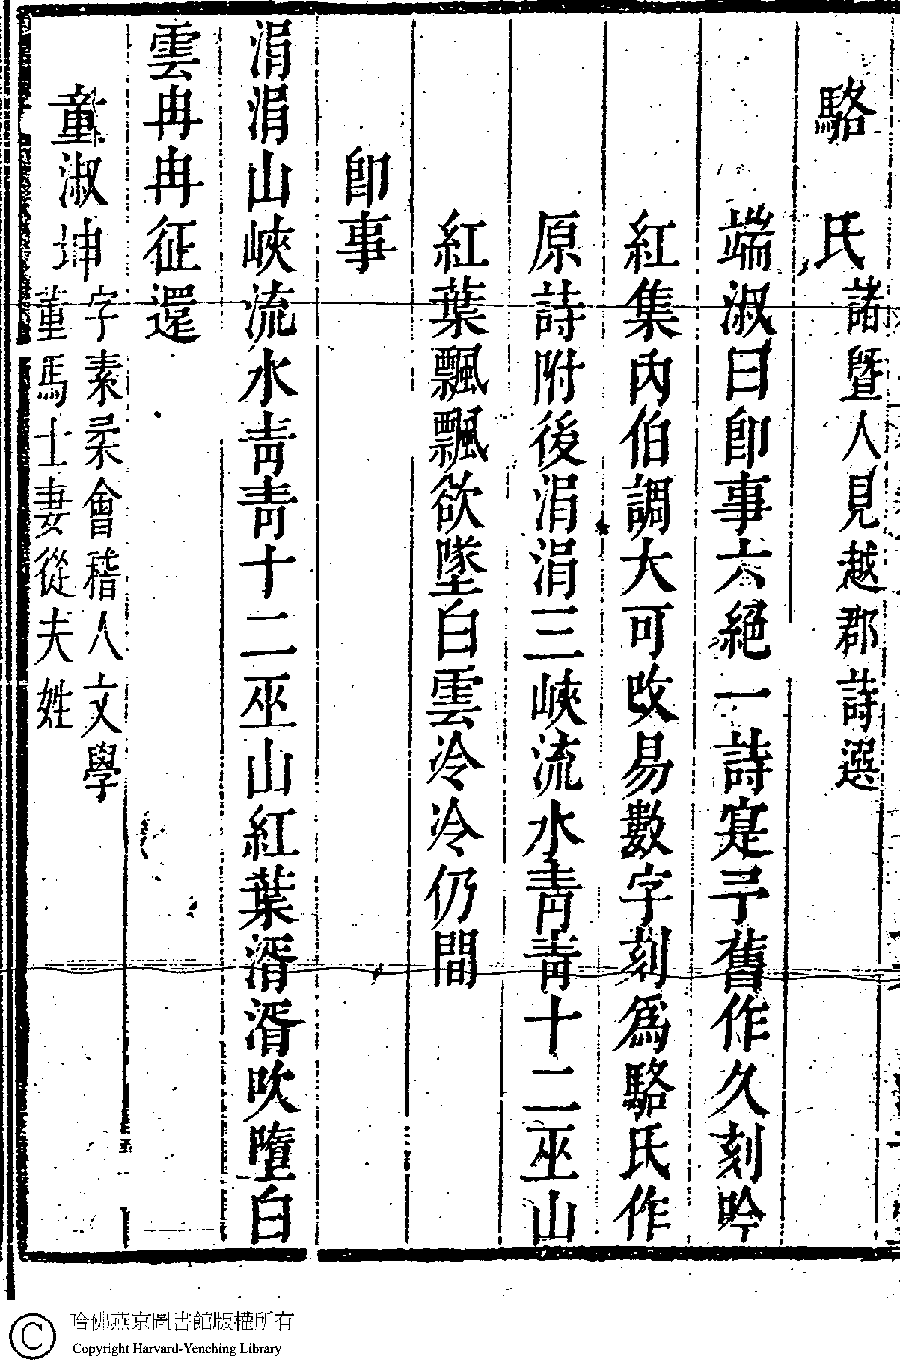 駱氏 諸暨人見越郡詩選
端淑曰即事六絕一詩寔予舊作久刻吟
紅集內伯調大可改易數字刻為駱氏作
原詩附後涓涓三峽流水青青十二巫山
紅葉飄飄欲墜白雲冷冷仍間
即事
涓涓山峽流水青青十二巫山紅葉湑湑吹墮白
雲冉冉征還
童淑坤 字素柔會稽人文學
董馬士妻從夫姓
哈佛燕京圖書館版權所有
Copyright Harvard-Yenching Library